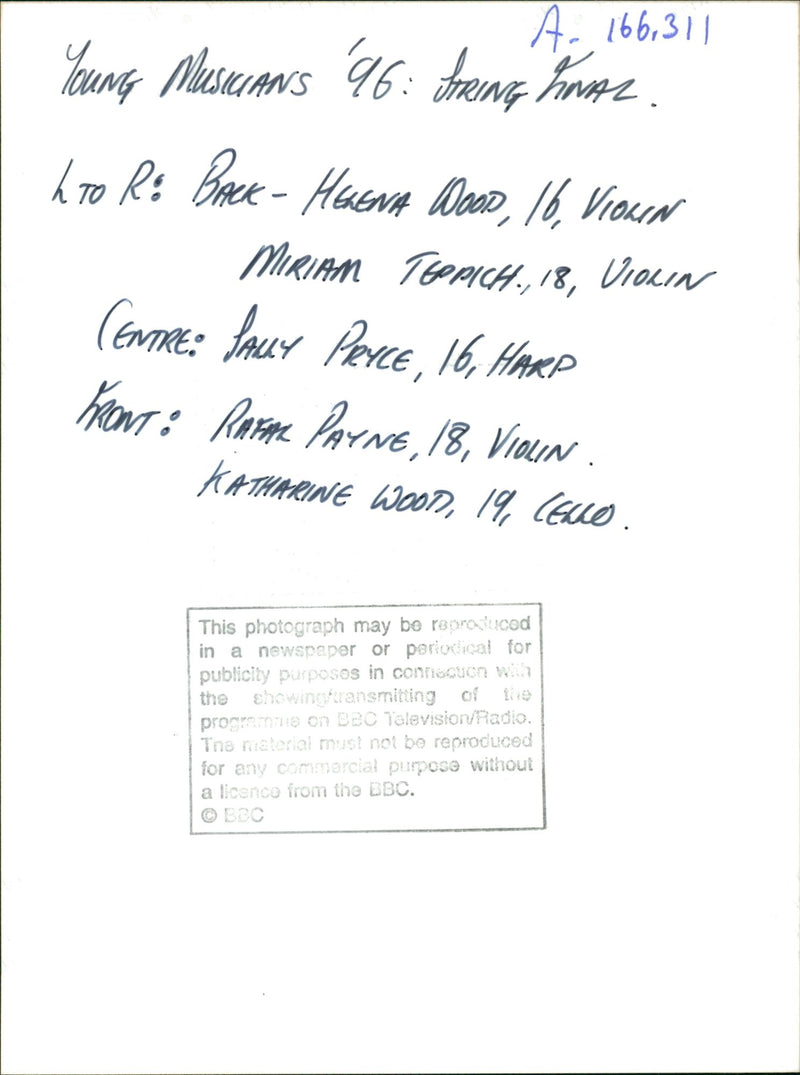 A- 166,311
YOUNG MUSICIANS '96: STRING FINAL.
L TO R: BACK - HELENA WOOD, 16, VIOLIN
MIRIAM TEPPICH., 18, VIOLIN
CENTRE: SALLY PRYCE, 16, HARP
FRONT: RAFAL PAYNE, 18, VIOLIN.
KATHARINE WOOD, 19, CELLO.
This photograph may be reproduced
in a newspaper or periodical for
publicity purposes in connection with
the showing/transmitting of the
programme on BBC Television/Radio.
The material must not be reproduced
for any commercial purpose without
a licence from the BBC.
© BBC